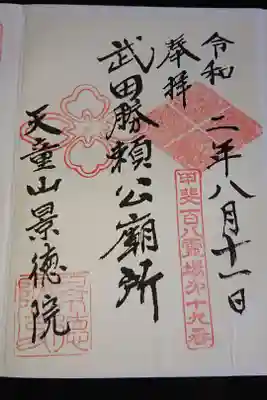 令和二年八月十一日
奉拝
甲斐百八霊場第十九番
武田勝頼公廟所
天童山景徳院